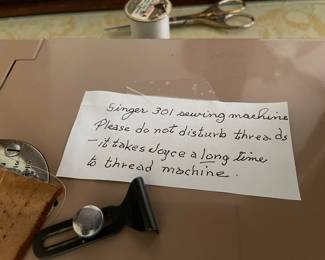 Singer 301 sewing machine
Please do not disturb threads
- it takes Joyce a long time
to thread machine.